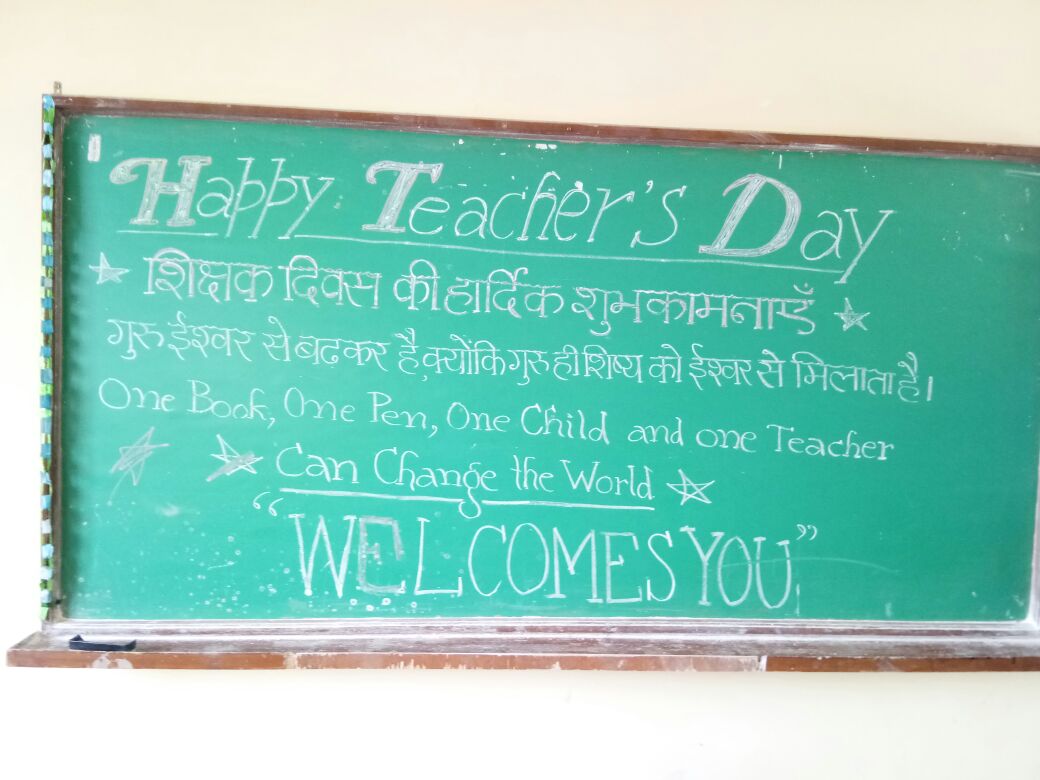 Happy Teacher's Day
शिक्षक दिवस की हार्दिक शुभकामनाएँ
गुरु ईश्वर से बढकर है, क्योंकि गुरु ही शिष्य को ईश्वर से मिलाता है।
One Book, One Pen, One Child and one Teacher
Can Change the World
“WELCOMES YOU”